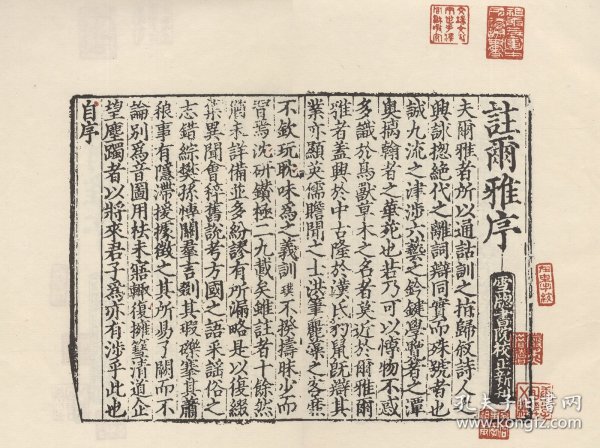 註爾雅序
雪牕書院校正新
夫爾雅者所以通詁訓之指歸敘詩人之
興訓揔絕代之離詞辯同實而殊號者也
誠九流之津涉六藝之鈐鍵學覽者之潭
奧摛翰者之華苑也若乃可以博物不惑
多識於鳥獸草木之名者莫近於爾雅爾
雅者蓋興於中古隆於漢氏豹鼠既辯其
業亦顯英儒贍聞之士洪筆麗藻之客靡
不欽玩耽味爲之義訓璞不揆檮昧少而
習焉沈研鑽極二九載矣雖註者十餘然
猶未詳備並多紛謬有所漏略是以復綴
集異聞會稡舊說考方國之語采謠俗之
志錯綜樊孫愽關羣言剟其瑕礫搴其蕭
稂事有隱滯援據徵之其所易了闕而不
論別爲音圖用祛未寤輒復擁篲清道企
望塵躅者以將來君子爲亦有涉乎此也
自序
孔夫子旧书网
kongfz.com